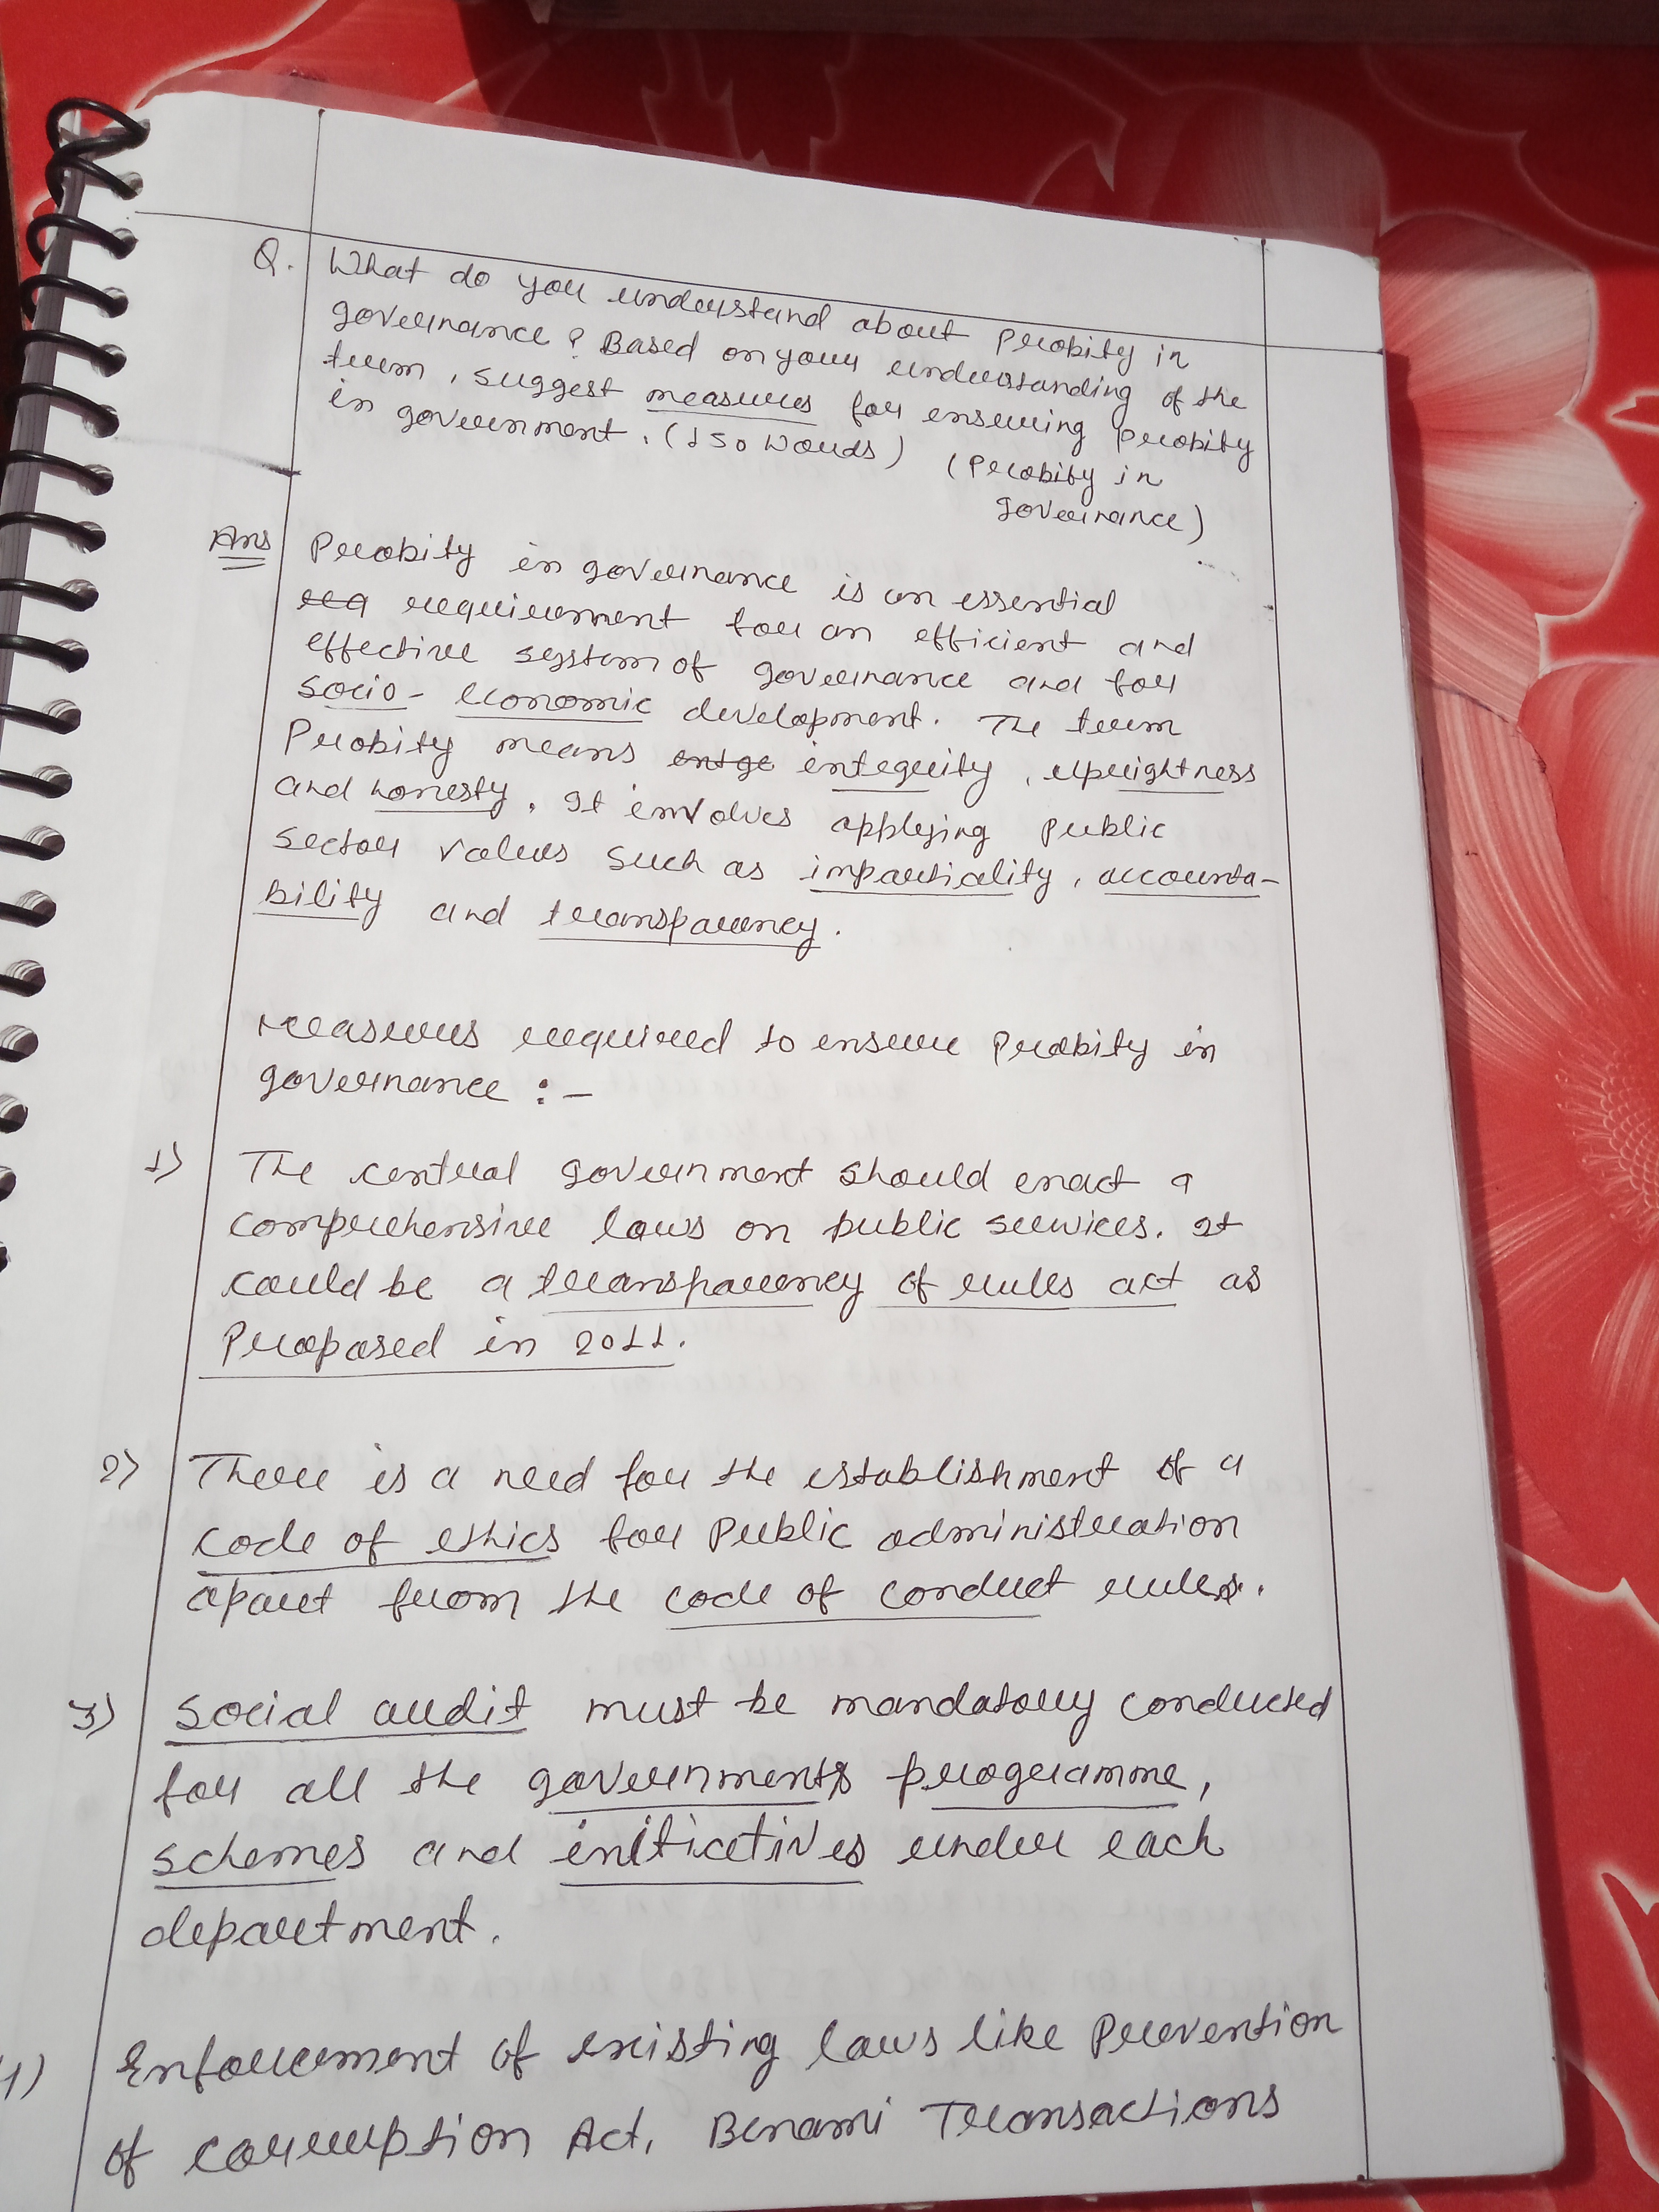 Q. What do you understand about probity in
governance? Based on your understanding of the
term, suggest measures for ensuring probity
in government. (150 words) (Probity in
governance)
Ans Probity in governance is an essential
req requirement for an efficient and
effective system of governance and for
socio-economic development. The term
Probity means entge integrity, uprightness
and honesty. It involves applying public
sector values such as impartiality, accounta-
bility and transparency.
Measures required to ensure probity in
governance :-
1) The central government should enact a
comprehensive laws on public services. It
could be a transparency of rules act as
proposed in 2011.
2) There is a need for the establishment of a
code of ethics for Public administration
apart from the code of conduct rules.
3) Social audit must be mandatory conducted
for all the governments programme,
schemes and initiatives under each
department.
4) Enforcement of existing laws like Prevention
of corruption Act, Benami Transactions